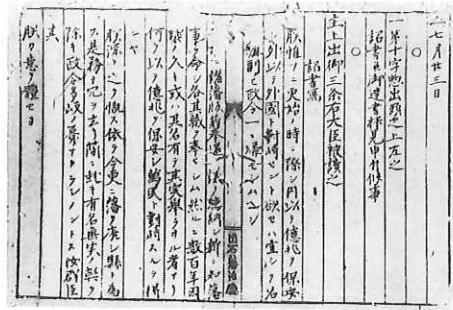 一七月廿三日
一第十字惣出頭之上左之
詔書並御達書拝見申付候事
主上出御三条右大臣被読之
詔書写
朕惟フニ更始ノ時ニ際シ内以テ億兆ヲ保安
シ外以テ万国ト対峙セント欲セハ宜シク名
実相副ヒ政令一ニ帰セシムヘシ
朕 諸藩版籍奉還ノ議ヲ聴納シ新ニ知藩
事ヲ命シ各其職ヲ奉セシム然ルニ数百年因
襲ノ久キ或ハ其名有テ其実挙ラサル者アリ
何ヲ以テ億兆ヲ保安シ万国ト対峙スルヲ得
ンヤ
朕深ク之ヲ慨ス依テ今更ニ藩ヲ廃シ県ト為
ス是務テ冗ヲ去リ簡ニ就キ有名無実ノ弊ヲ
除キ政令多岐ノ憂ナカラシメントス汝群臣
其
朕カ意ヲ体セヨ